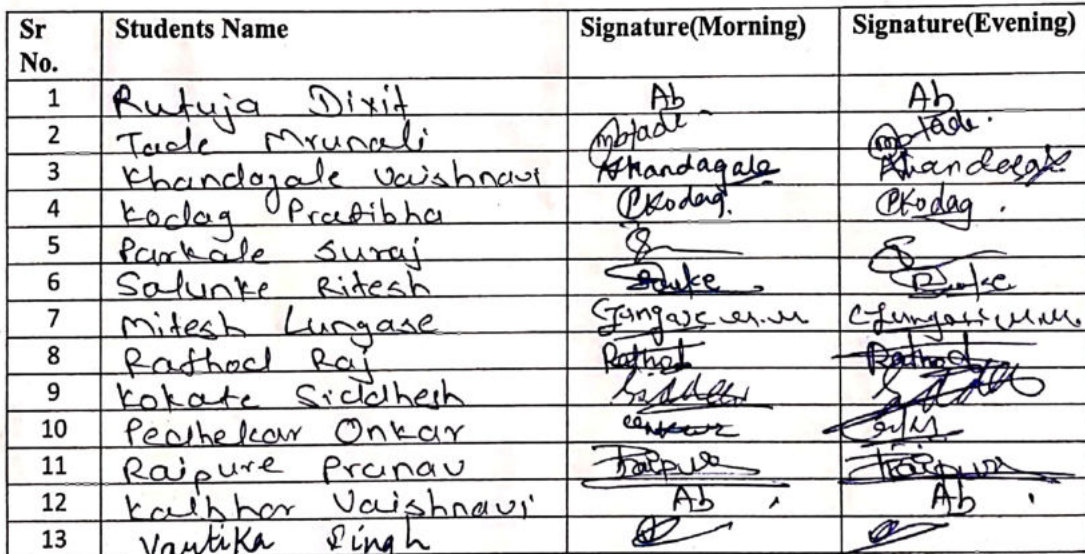 Sr No. Students Name Signature(Morning) Signature(Evening)
1 Rutuja Dixit Ab Ab
2 Tade Mrunali
3 Khandagale Vaishnavi Khandagale
4 Kodag Pratibha PKodag. PKodag.
5 Parkale Suraj
6 Salunke Ritesh
7 Mitesh Lungase
8 Rathod Raj Rathod Rathod
9 Kokate Siddhesh
10 Pednekar Onkar
11 Raipure Pranav
12 Kalbhor Vaishnavi Ab Ab
13 Vartika Singh